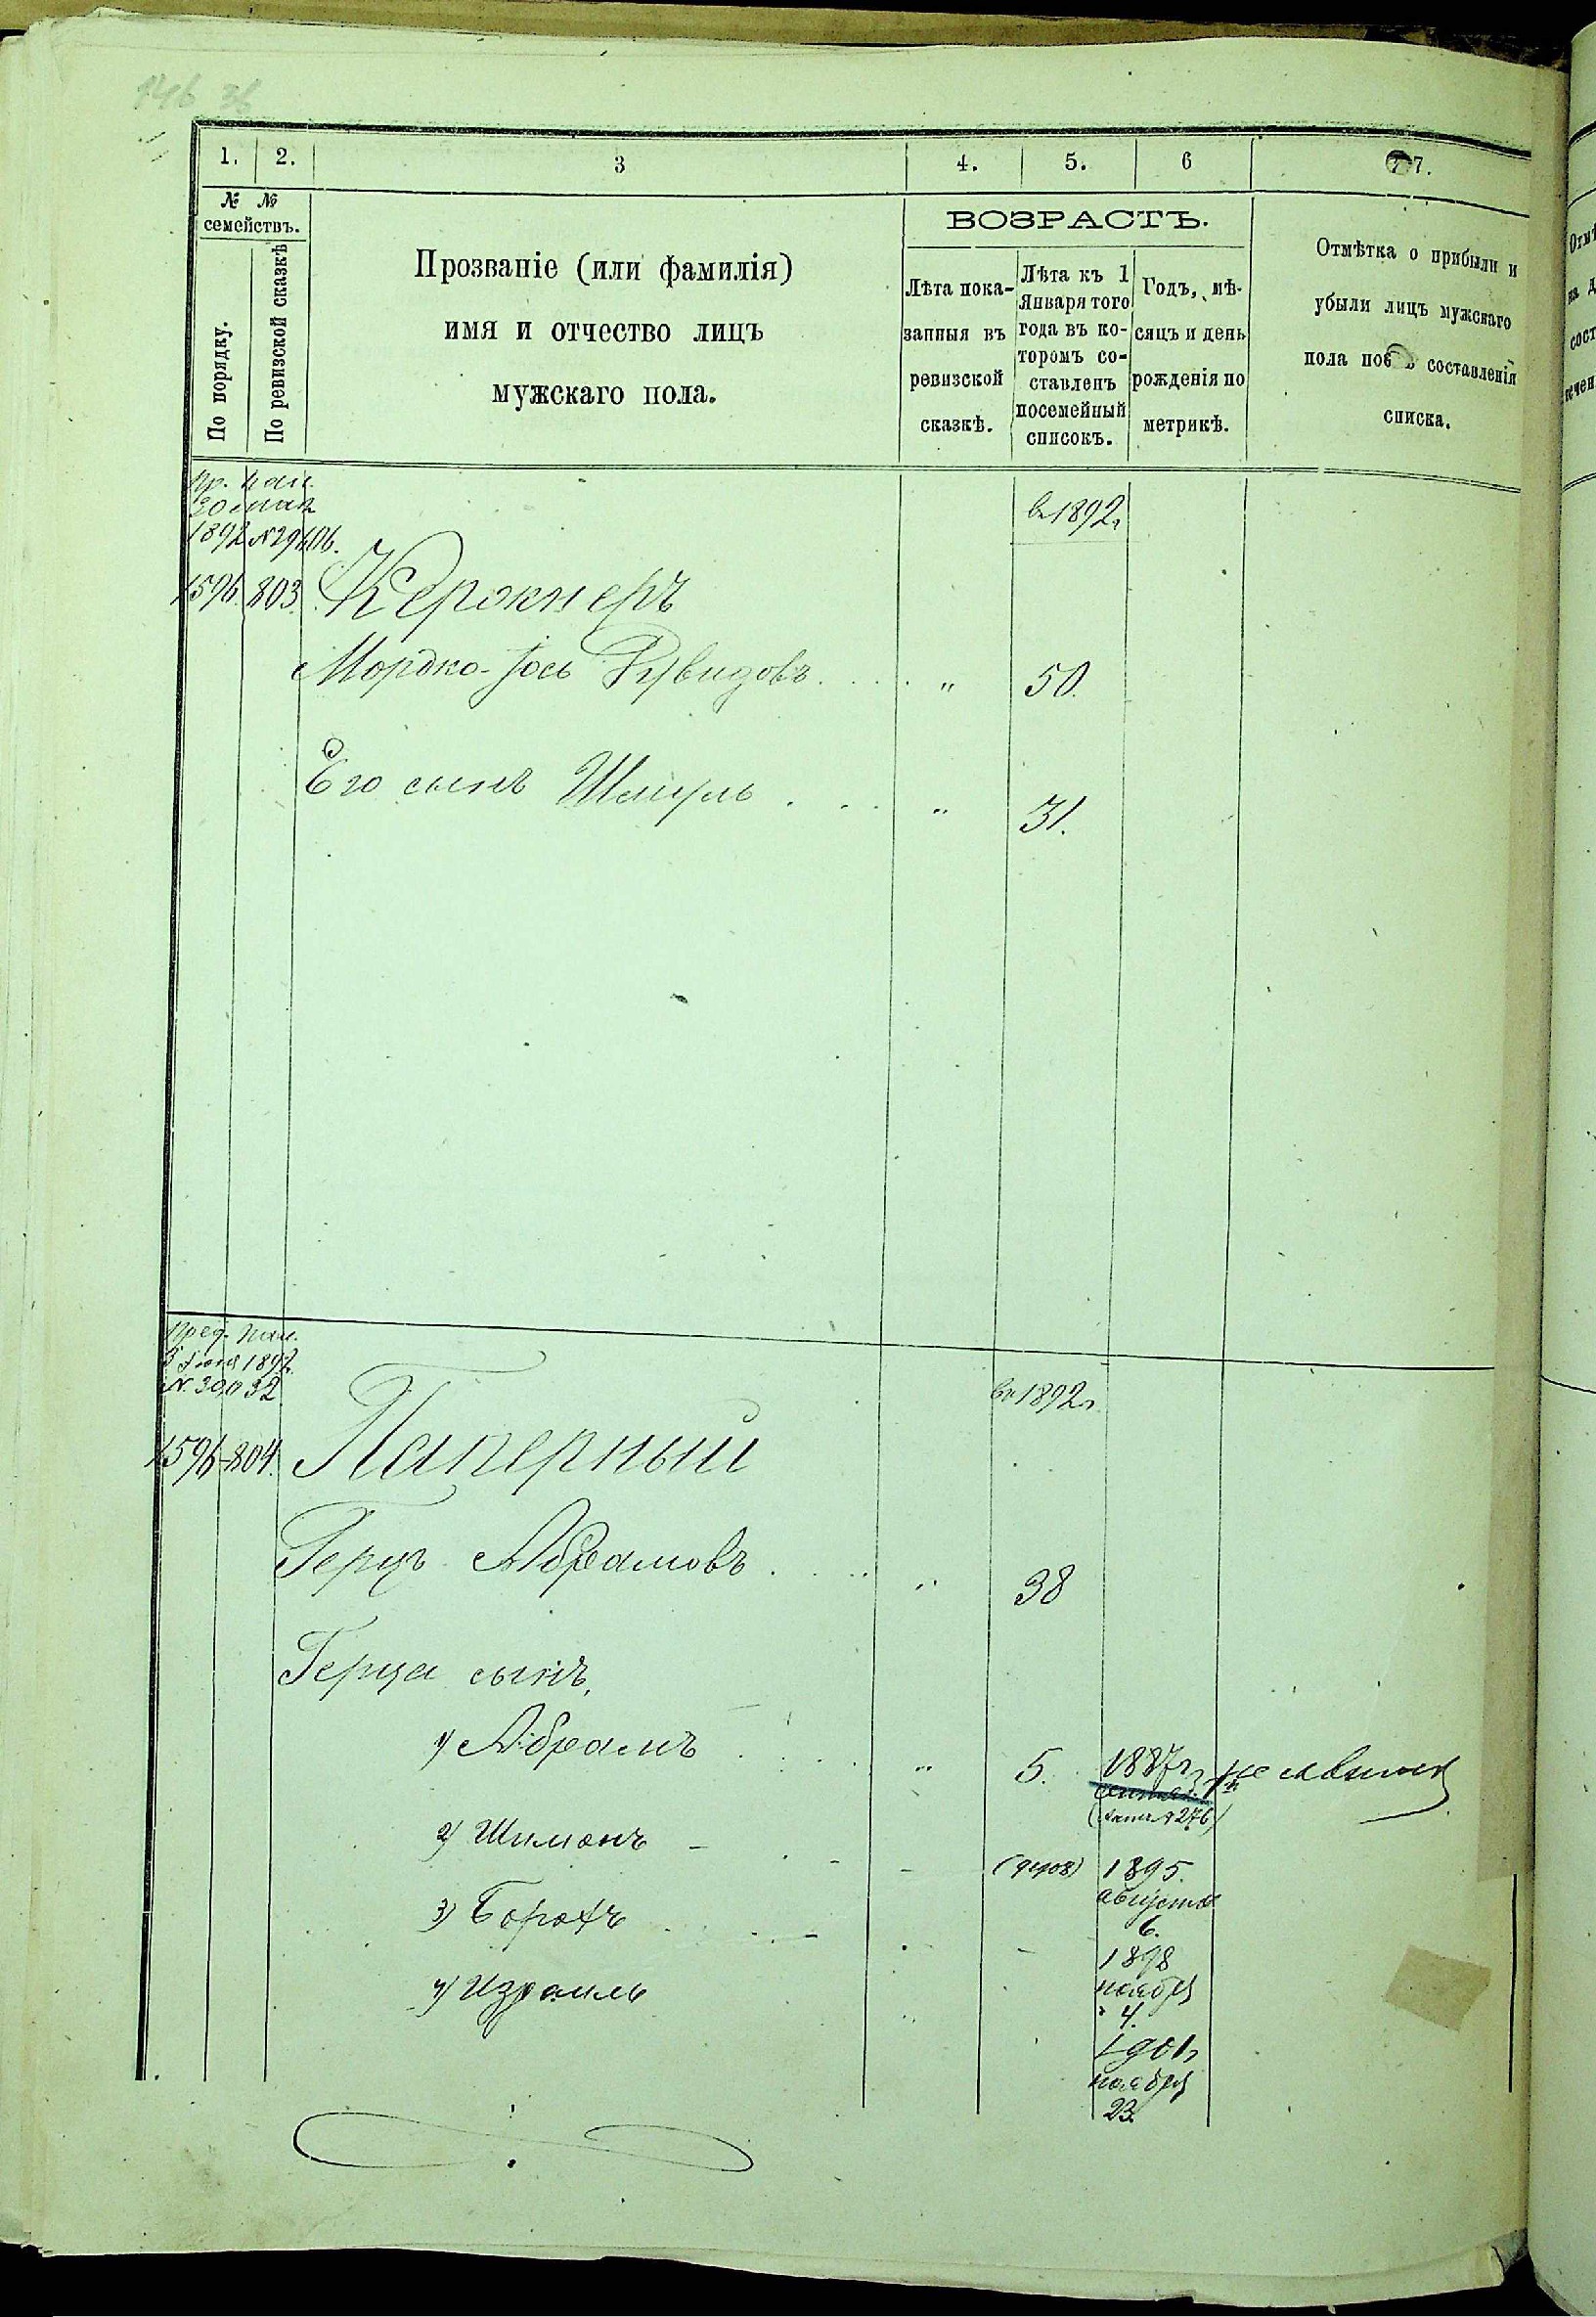 146 36
1. 2. 3 4. 5. 6 7.
№ №
семействъ.
По порядку.
По ревизской сказкѣ
Прозваніе (или фамилія)
имя и отчество лицъ
мужскаго пола.
ВОЗРАСТЪ.
Лѣта пока-
занныя въ
ревизской
сказкѣ.
Лѣта къ 1
Января того
года въ ко-
торомъ со-
ставленъ
посемейный
списокъ.
Годъ, мѣ-
сяцъ и день
рожденія по
метрикѣ.
Отмѣтка о прибыли и
убыли лицъ мужскаго
пола составленія
списка.
Пр. пал.
1892 № 29406.
въ 1892 г
1596. 803.
Мордко-Іось . . . " 50.
Его сынъ Шмуль . . . " 31.
Пред. пал.
5 Іюня 1892
№ 30,032
въ 1892 г.
1596 - 804. Паперный
Герцъ Абрамовъ . . . " 38
Герца сынъ,
1) Абрамъ " 5. 1887 г.
2) Шимонъ - 1895.
августа
6.
3) Борохъ 1898
ноября
4.
4) Израиль 1901 г
ноября
23.